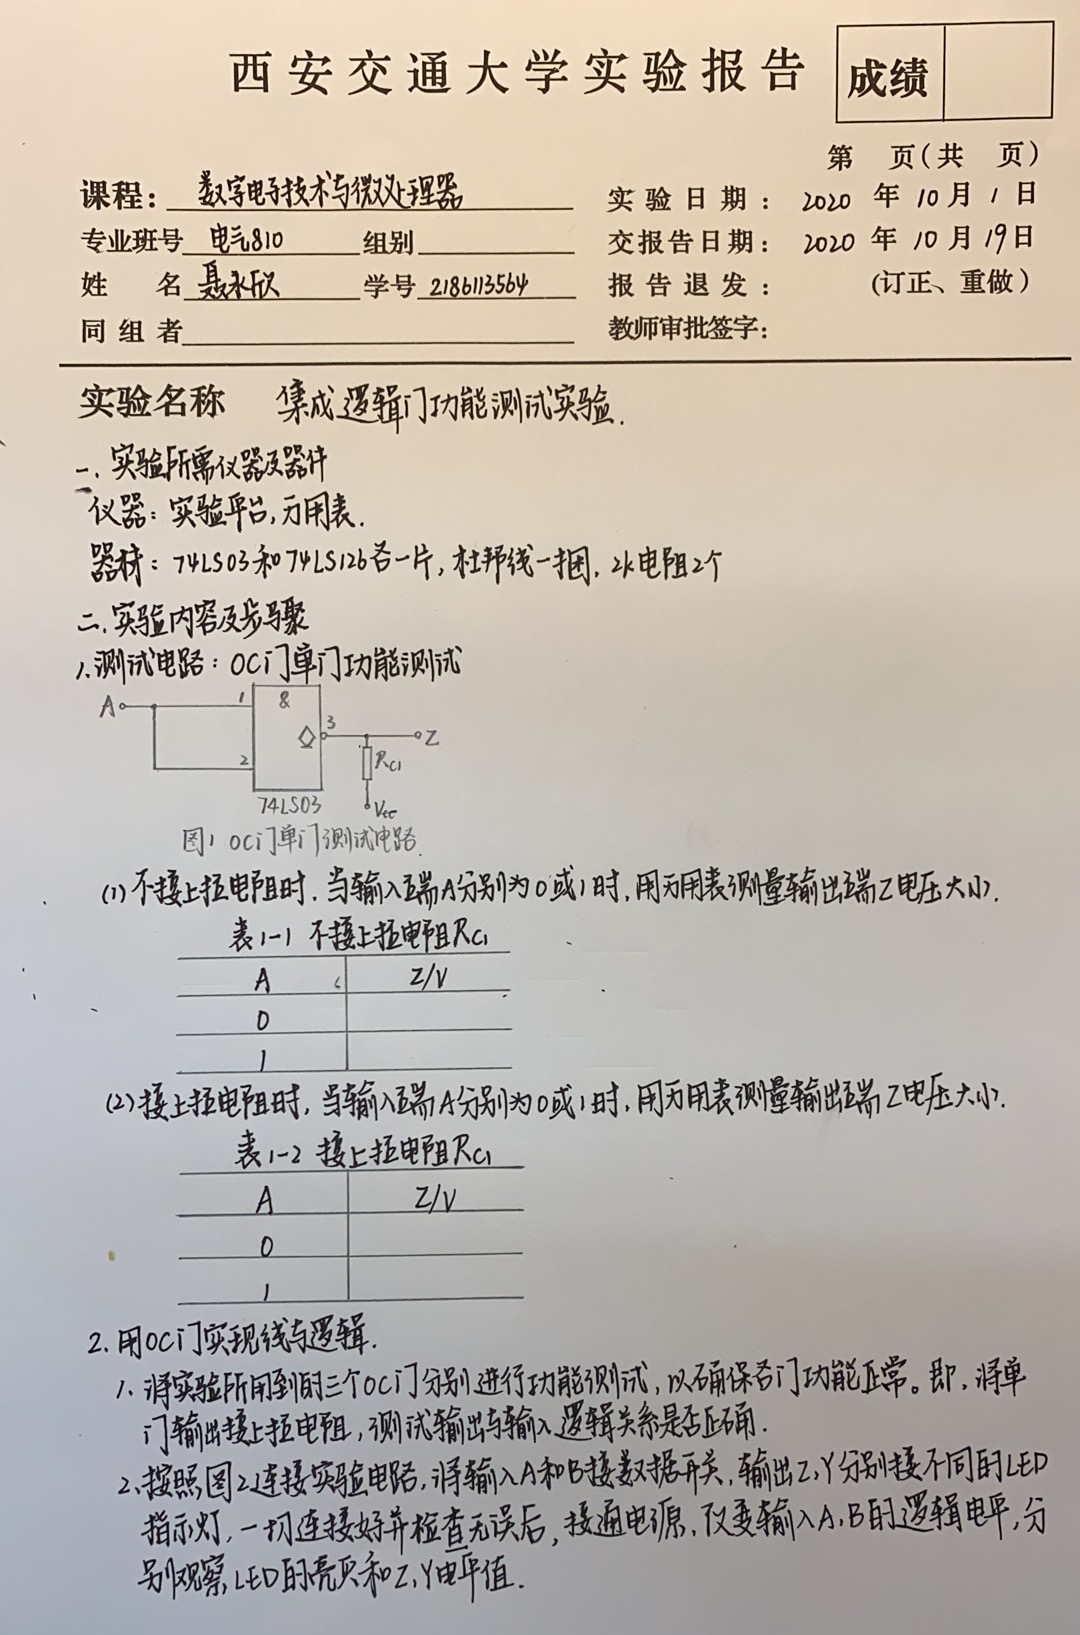 西安交通大学实验报告
成绩
第 页(共 页)
课程: 数字电子技术与微处理器
实验日期: 2020 年 10 月 1 日
专业班号 电气810 组别
交报告日期: 2020 年 10 月 19 日
姓 名 聂永欣 学号 2186113564
报告退发: (订正、重做)
同组者
教师审批签字:
实验名称 集成逻辑门功能测试实验.
一. 实验所需仪器及器件
仪器: 实验平台,万用表.
器材: 74LS03和74LS126各一片,杜邦线一捆. 2k电阻2个
二. 实验内容及步骤
1. 测试电路: OC门单门功能测试
A 1 & 3 Z
2 RC1
74LS03 Vcc
图1 OC门单门测试电路.
(1) 不接上拉电阻时. 当输入端A分别为0或1时,用万用表测量输出端Z电压大小.
表1-1 不接上拉电阻RC1
A Z/V
0
1
(2) 接上拉电阻时, 当输入端A分别为0或1时,用万用表测量输出端Z电压大小.
表1-2 接上拉电阻RC1
A Z/V
0
1
2. 用OC门实现线与逻辑.
1. 将实验所用到的三个OC门分别进行功能测试,以确保各门功能正常。即,将单
门输出接上拉电阻,测试输出与输入逻辑关系是否正确.
2. 按照图2连接实验电路,将输入A和B接数据开关,输出Z,Y分别接不同的LED
指示灯,一切连接好并检查无误后,接通电源,改变输入A,B的逻辑电平,分
别观察LED的亮灭和Z,Y电平值.